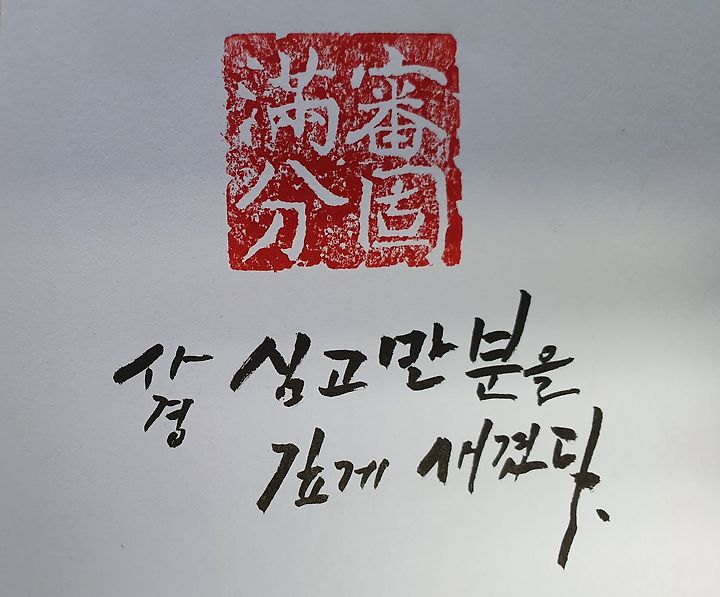 審固
滿分
사경 심고만분을
깊게 새겼다.